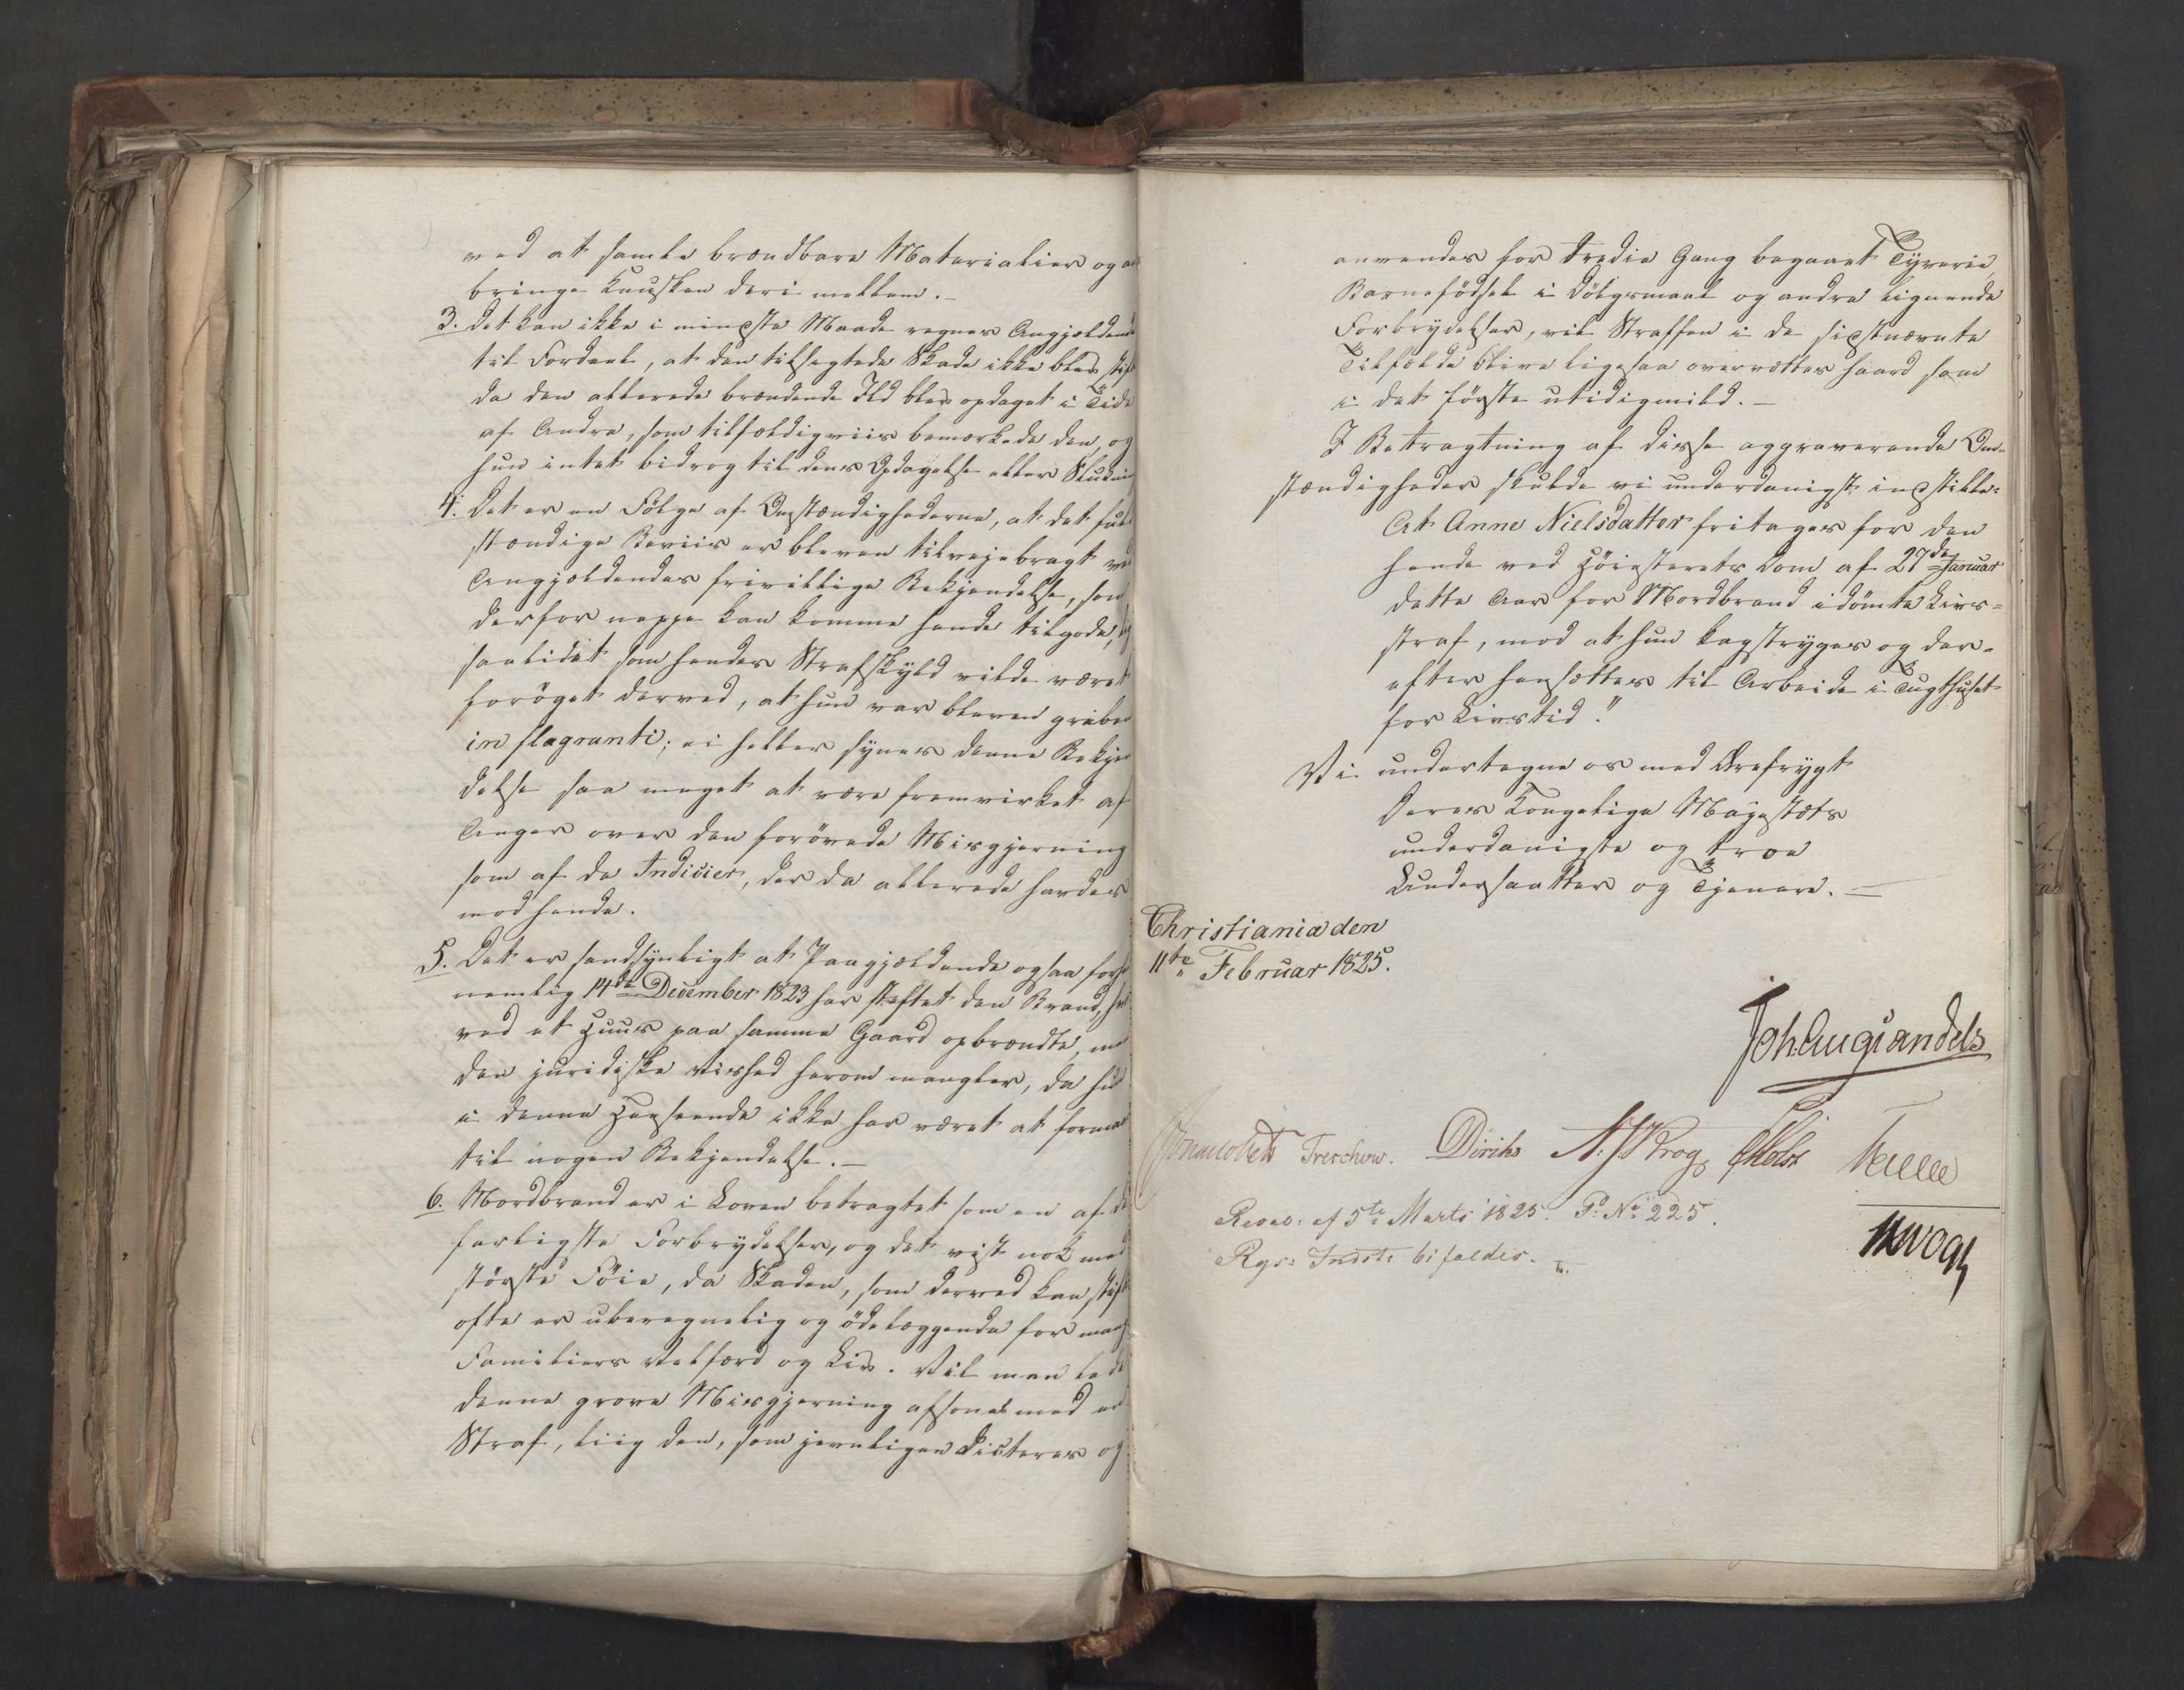 ved at samle brændbare Materialier og an
bringe Knusken deri mellem. _
3. Det kan ikke i mindste Maade regnes Angjældende
til Fordeel, at den tilsigtede Skade ikke blev stif
da den allerede brændende Ild blev opdaget i Tide
af Andre, som tilfældigviis bemærkede den, og
hun intet bidrog til dens Opdagelse eller Slukni
4. Det er en Følge af Omstændighederne, at det fuld
stændige Beviis er bleven tilvejebragt ved
Angjældendes frivillige Bekjendelse, som
derfor neppe kan komme hende tilgode, lig
saalidet som hendes Strafskyld vilde været
forøget derved, at hun var bleven greben
in flagranti; ei heller synes denne Bekjen
delse saa meget at være fremvirket af
Anger over den forøvede Misgjerning
som af de Indicier, der da allerede havdes
mod hende.
5. Det er sandsynligt at Paagjældende ogsaa forh
nemlig 14de December 1823 har stiftet den Brand, hvor
ved et Huus paa samme Gaard opbrændte, men
den juridiske Vished herom mangler, da hun
i denne Henseende ikke har været at formaae
til nogen Bekjendelse. _
6. Mordbrand er i Loven betragtet som en af de
farligste Forbrydelser, og det vist nok med
største Føie, da Skaden, som derved kan stift
ofte er uberegnelig og ødelæggende for mang
Familiers Velfærd og Liv. Vil man lade
denne grove Misgjerning afsones med en
Straf, liig den, som jevnligen dicteres og
anvendes for tredie Gang begaaet Tyverie,
Barnefødsel i Dølgsmaal og andre lignende
Forbrydelser, vil Straffen i de sidstnævnte
Tilfælde blive ligesaa overvættes haard som
i det første utidigmild. _
I Betragtning af disse aggraverende Om-
stændigheder skulde vi underdanigst indstille:
At Anne Nielsdatter fritages for den
hende ved Høiesterets Dom af 27de Januar
dette Aar for Mordbrand idømte Livs-
straf, mod at hun kagstryges og der-
efter hensættes til Arbeide i Tugthuset
for Livstid."
Vi undertegne os med Ærefrygt
Deres Kongelige Majestæts
underdanigste og troe
Undersaatter og Tjenere. _
Christiania den
11te Februar 1825.
Joh. Aug. Sandels
Sommerfeldt Treschow. Diriks A. J. Krog PHolst
Resol: af 5te Marts 1825. P: No 225.
Rgs: Indst: bifaldes.